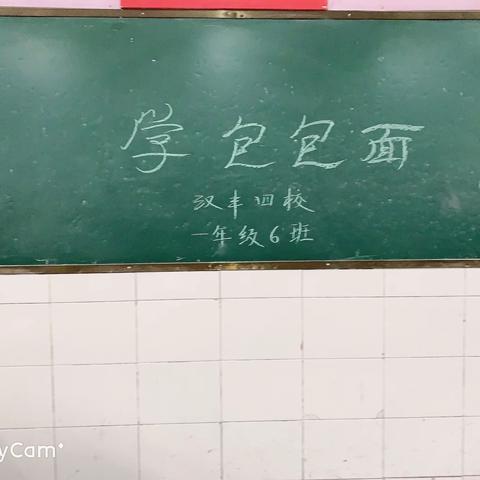 学包包面
汉丰四校
一年级6班
yCam